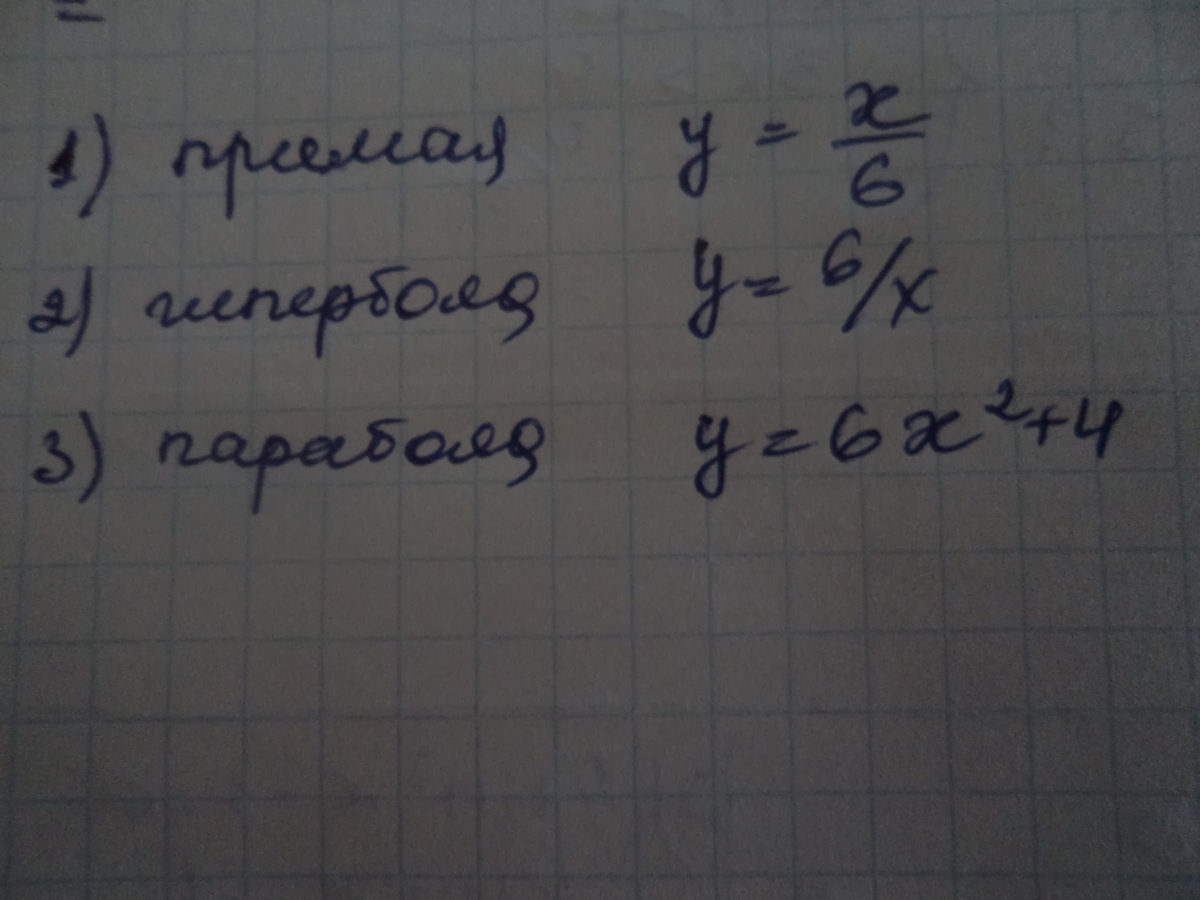 1) прямая y = x/6
2) гипербола y = 6/x
3) парабола y = 6x²+4